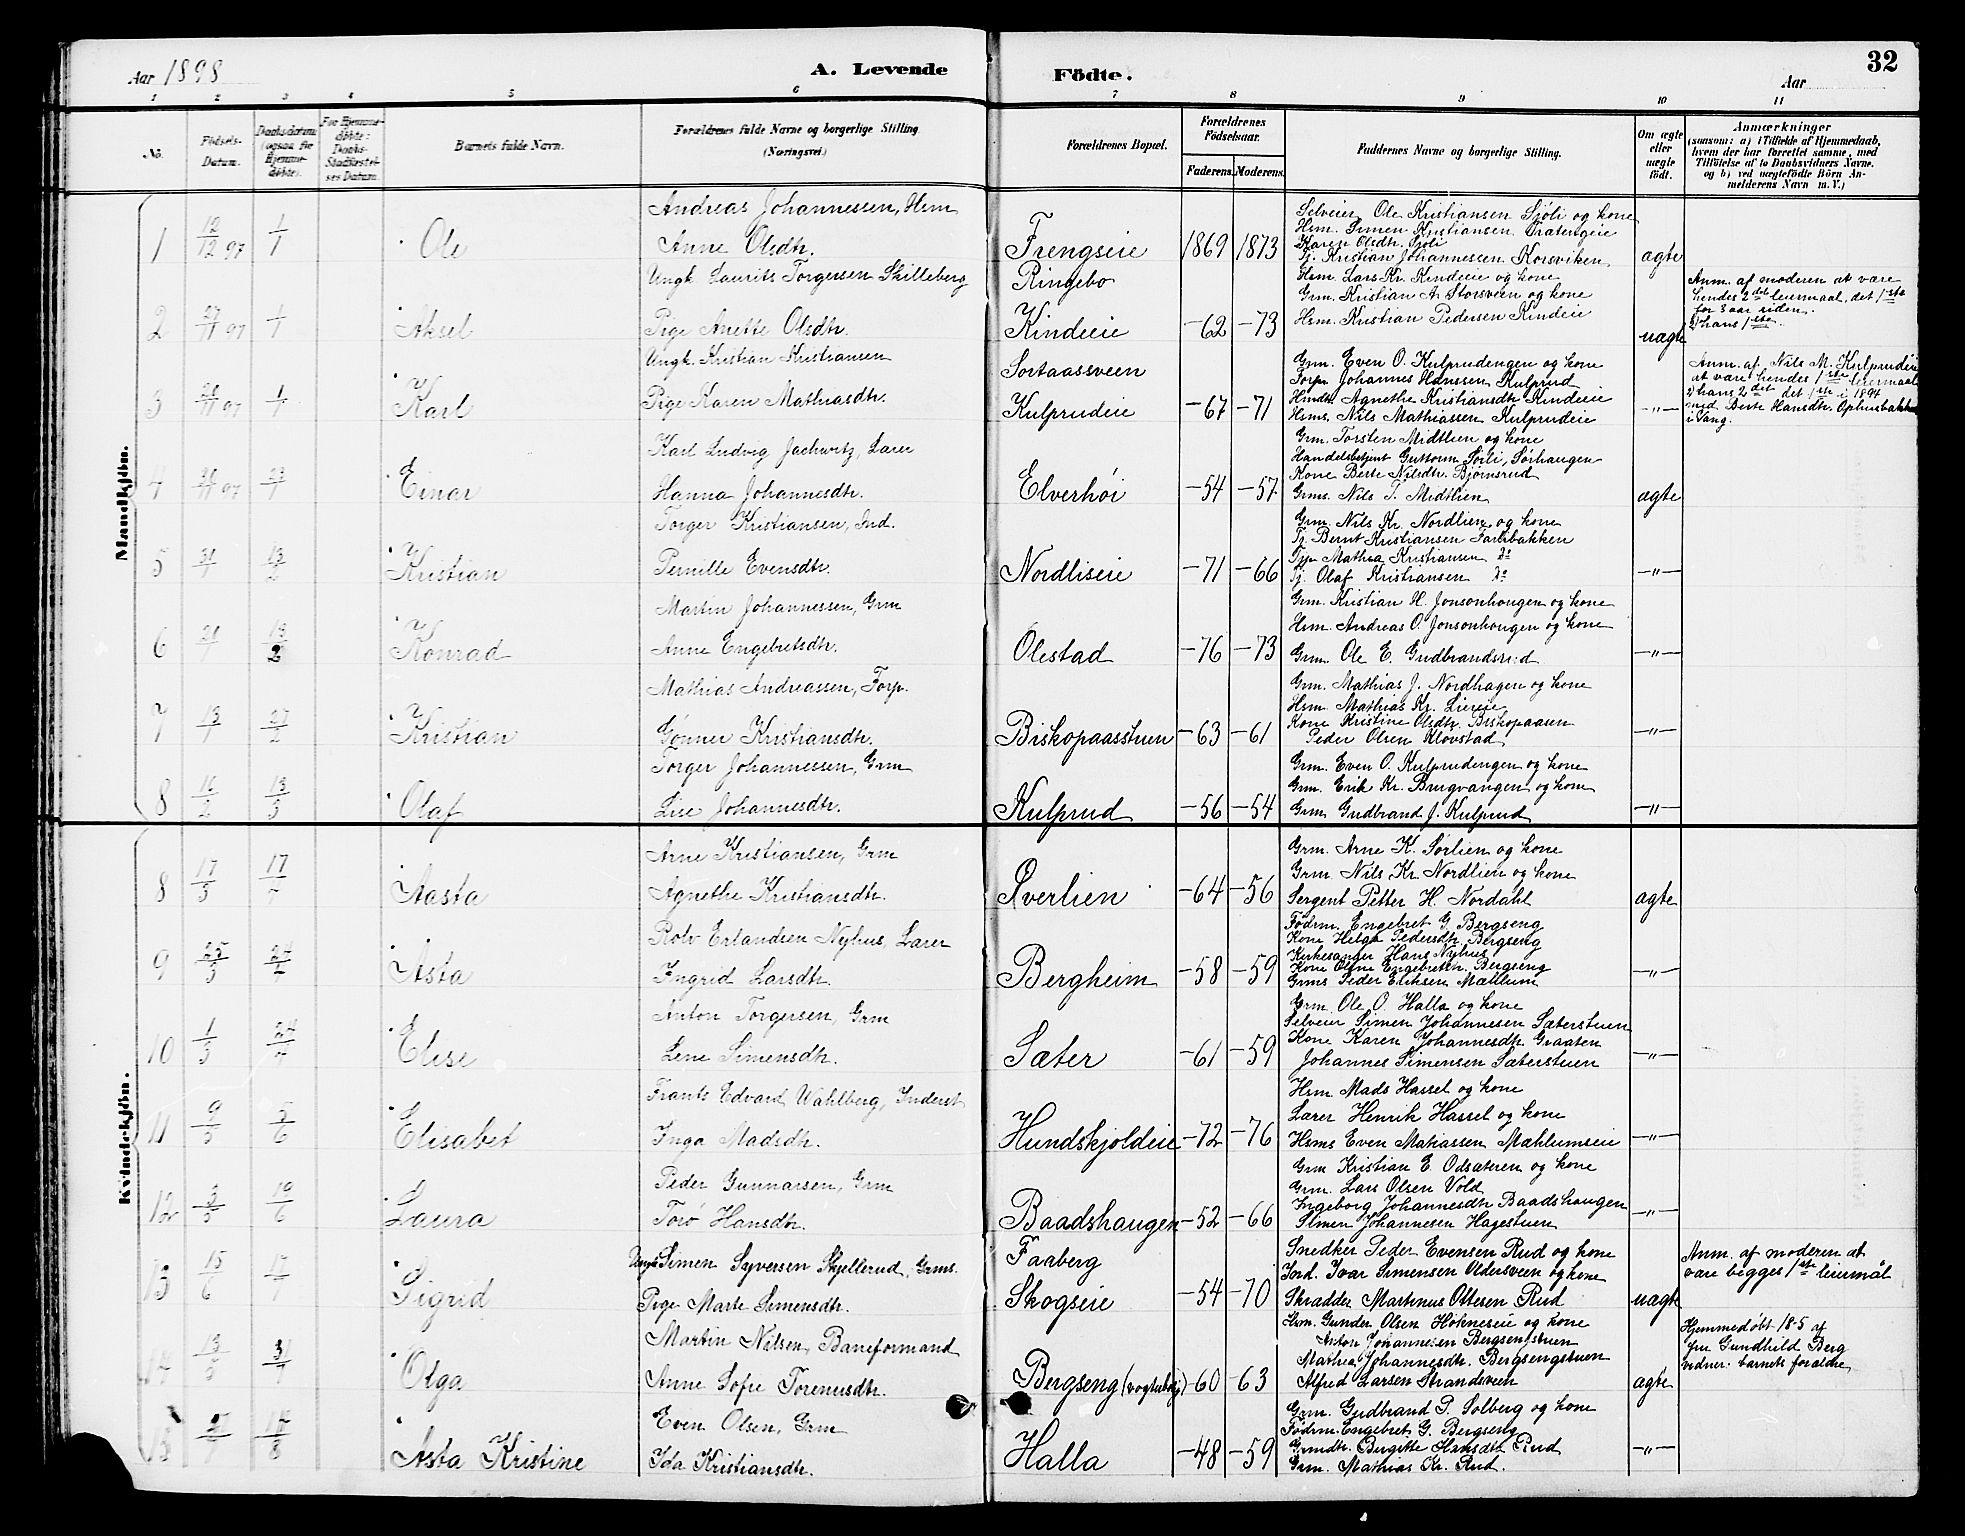 Aar 1898
A. Levende
Födte.
Aar
32
1 2 3 4 5 6 7 8 9 10 11
No.
Födsels-Datum.
Daabsdatum (ogsaa for Hjemme-döbte).
For Hjemme-döbte: Daabs-Stadfæstel-ses Datum.
Barnets fulde Navn.
Forældrenes fulde Navne og borgerlige Stilling (Næringsvei.)
Forældrenes Bopæl.
Forældrenes Födselsaar.
Faderens. Moderens.
Faddernes Navne og borgerlige Stilling.
Om ægte eller uægte födt.
Anmærkninger
(saasom: a) i Tilfælde af Hjemmedaab, hvem der har forrettet samme, med Tilföielse af to Daabsvidners Navne. og b) ved uægtefödte Börn An-melderens Navn m. V.)
Mandkjön.
1 12/12 97 1/1 Ole
Andreas Johannessen, Hsm
Anne Olsdtr.
Frengseie 1869 1873
Selveier Ole Kristiansen Sjöli og kone
Hsm. Simen Kristiansen Trætengeie
Karen Olsdtr. Sjöli
Tj. Kristian Johannessen Korsviken
ægte
2 27/11 97 1/1 Aksel
Ungk. Laurits Torgersen Skilleberg
Pige Anette Olsdtr.
Ringebo
Kindeie -62 -73
Hsm. Lars Kr. Kindeie og kone
Grm. Kristian A. Storsveen og kone
Hsm. Kristian Pedersen Kindeie
uægte
Anm. af moderen at være
hendes 2det leiermaal, det 1ste
for 3 aar siden.
hans 1ste.
3 20/11 97 1/1 Karl
Ungk. Kristian Kristiansen
Pige Karen Mathiasdtr.
Sortaasveen
Kulprudeie -67 -71
Grm. Even O. Kulprudengen og kone
Forp. Johannes Hanssen Kulprud
Husdtr. Agnethe Kristiansdtr Kindeie
Hsms. Nils Mathiassen Kulprudeie
-"-
Anm. af Nils M. Kulprudeie
at være hendes 1ste leiermaal
hans 2det det 1ste i 1894
med Berte Hansdtr. Ophusbakken
i Vang.
4 20/11 97 23/1 Einar
Karl Ludvig Jachwitz, Lærer
Hanna Johannesdtr.
Elverhöi -54 -57
Grm. Torsten Midtlien og kone
Handelsbetjent Guttorm Söili, Sörhaugen
Kone Berte Nilsdtr. Bjørnsrud
Grms. Nils T. Midtlien
ægte
5 31/1 13/2 Kristian
Torger Kristiansen, Ind.
Pernille Evensdtr.
Nordliseie -71 -66
Grm. Nils Kr. Nordlien og kone
Tj. Bernt Kristiansen Farbakken
Tjp Mathea Kristiansen do
Tj. Olaf Kristiansen do
-"-
6 21/1 13/2 Konrad
Martin Johannessen, Grm
Anne Engebretsdtr.
Olestad -76 -73
Grm. Kristian H. Jonsonhougen og kone
Hsm. Andreas O. Jonsonhougen og kone
Grm. Ole E. Gudbrandsrud
-"-
7 13/1 27/2 Kristian
Mathias Andreassen, Forp.
Gönner Kristiansdtr.
Biskopaasstuen -63 -61
Grm. Mathias J. Nordhagen og kone
Hsm. Mathias Kr. Liereie
Kone Kristine Olsdtr. Biskopaasen
Peder Olsen Klövstad
-"-
8 16/2 13/3 Olaf
Torger Johannessen, Grm
Lise Johannesdtr.
Kulprud -56 -54
Grm. Even O. Kulprudengen og kone
Grm. Erik Kr. Brugvangen og kone
Grm. Gudbrand J. Kulprud
-"-
Kvindekjön.
8 17/3 17/4 Aasta
Arne Kristiansen, Grm
Agnethe Kristiansdtr.
Sverlien -64 -56
Grm. Arne K. Sørlien og kone
Grm. Nils Kr. Nordlien og kone
Sergent Petter H. Nordahl
ægte
9 25/3 24/4 Asta
Rolv Erlandsen Nyhus, Lærer
Ingrid Larsdtr.
Bergheim -58 -59
Födrm. Engebret G. Bergseng
Kone Helga Pedersdtr Bergseng
Kirkesanger Hans Nyhus
Kone Oline Engebretsen Bergseng
Grms Peder Eriksen Mæhlum
-"-
10 1/3 24/4 Elise
Anton Torgersen, Grm
Lene Simensdtr.
Sæter -61 -59
Grm. Ole O. Halla og kone
Selveier Simen Johannesen Sæterstuen
Kone Karen Johannesdtr Graaten
Johannes Simensen Sæterstuen
-"-
11 9/5 5/6 Elisabet
Frants Edvard Wahlberg, Inderst
Inga Madsdtr.
Hundskjoldeie -72 -76
Hsm Mads Hassel og kone
Lærer Henrik Hassel og kone
Hsms Even Matiassen Mæhlumseie
-"-
12 3/5 19/6 Laura
Peder Gunnarsen, Grm
Torö Hansdtr.
Baadshaugen -52 -66
Grm Kristian E. Odsæteren og kone
Grm. Lars Olsen Vold
Ingeborg Johannesdtr Baadshaugen
Simen Johannesen Hagestuen
-"-
13 15/6 17/7 Sigrid
Ungk Simen Syversen Skjellerud, Grms.
Pige Marte Simensdtr.
Faaberg
Skogseie -54 -70
Snedker Peder Evensen Rud og kone
Jord. Ivar Simensen Oldersveen og kone
Skrædder Martinus Ottesen Rud
uægte
Anm. af moderen at
være begges 1ste leiermål
14 13/5 31/7 Olga
Martin Nilsen, Baneformand
Anne Sofie Toreniusdtr.
Bergseng (vogterbolig) -60 -63
Hsm. Gunder Olsen Høkneseie og kone
Anton Johannesen Bergsengstuen
Mathea Johannesdtr. Bergsengstuen
Alfred Larsen Strandsveen
ægte
Hjemmedøbt 18-5 af
fru Gundhild Berg
vidner: barnets forældre
15 14/8 Asta Kristine
Even Olsen, Grm
Ida Kristiansdtr.
Halla -48 -59
Grm. Gudbrand P. Solberg og kone
Födrm. Engebret G. Bergseng
Grmdtr. Birgitte Hansdtr Rud
Grm. Mathias Kr. Rud.
-"-